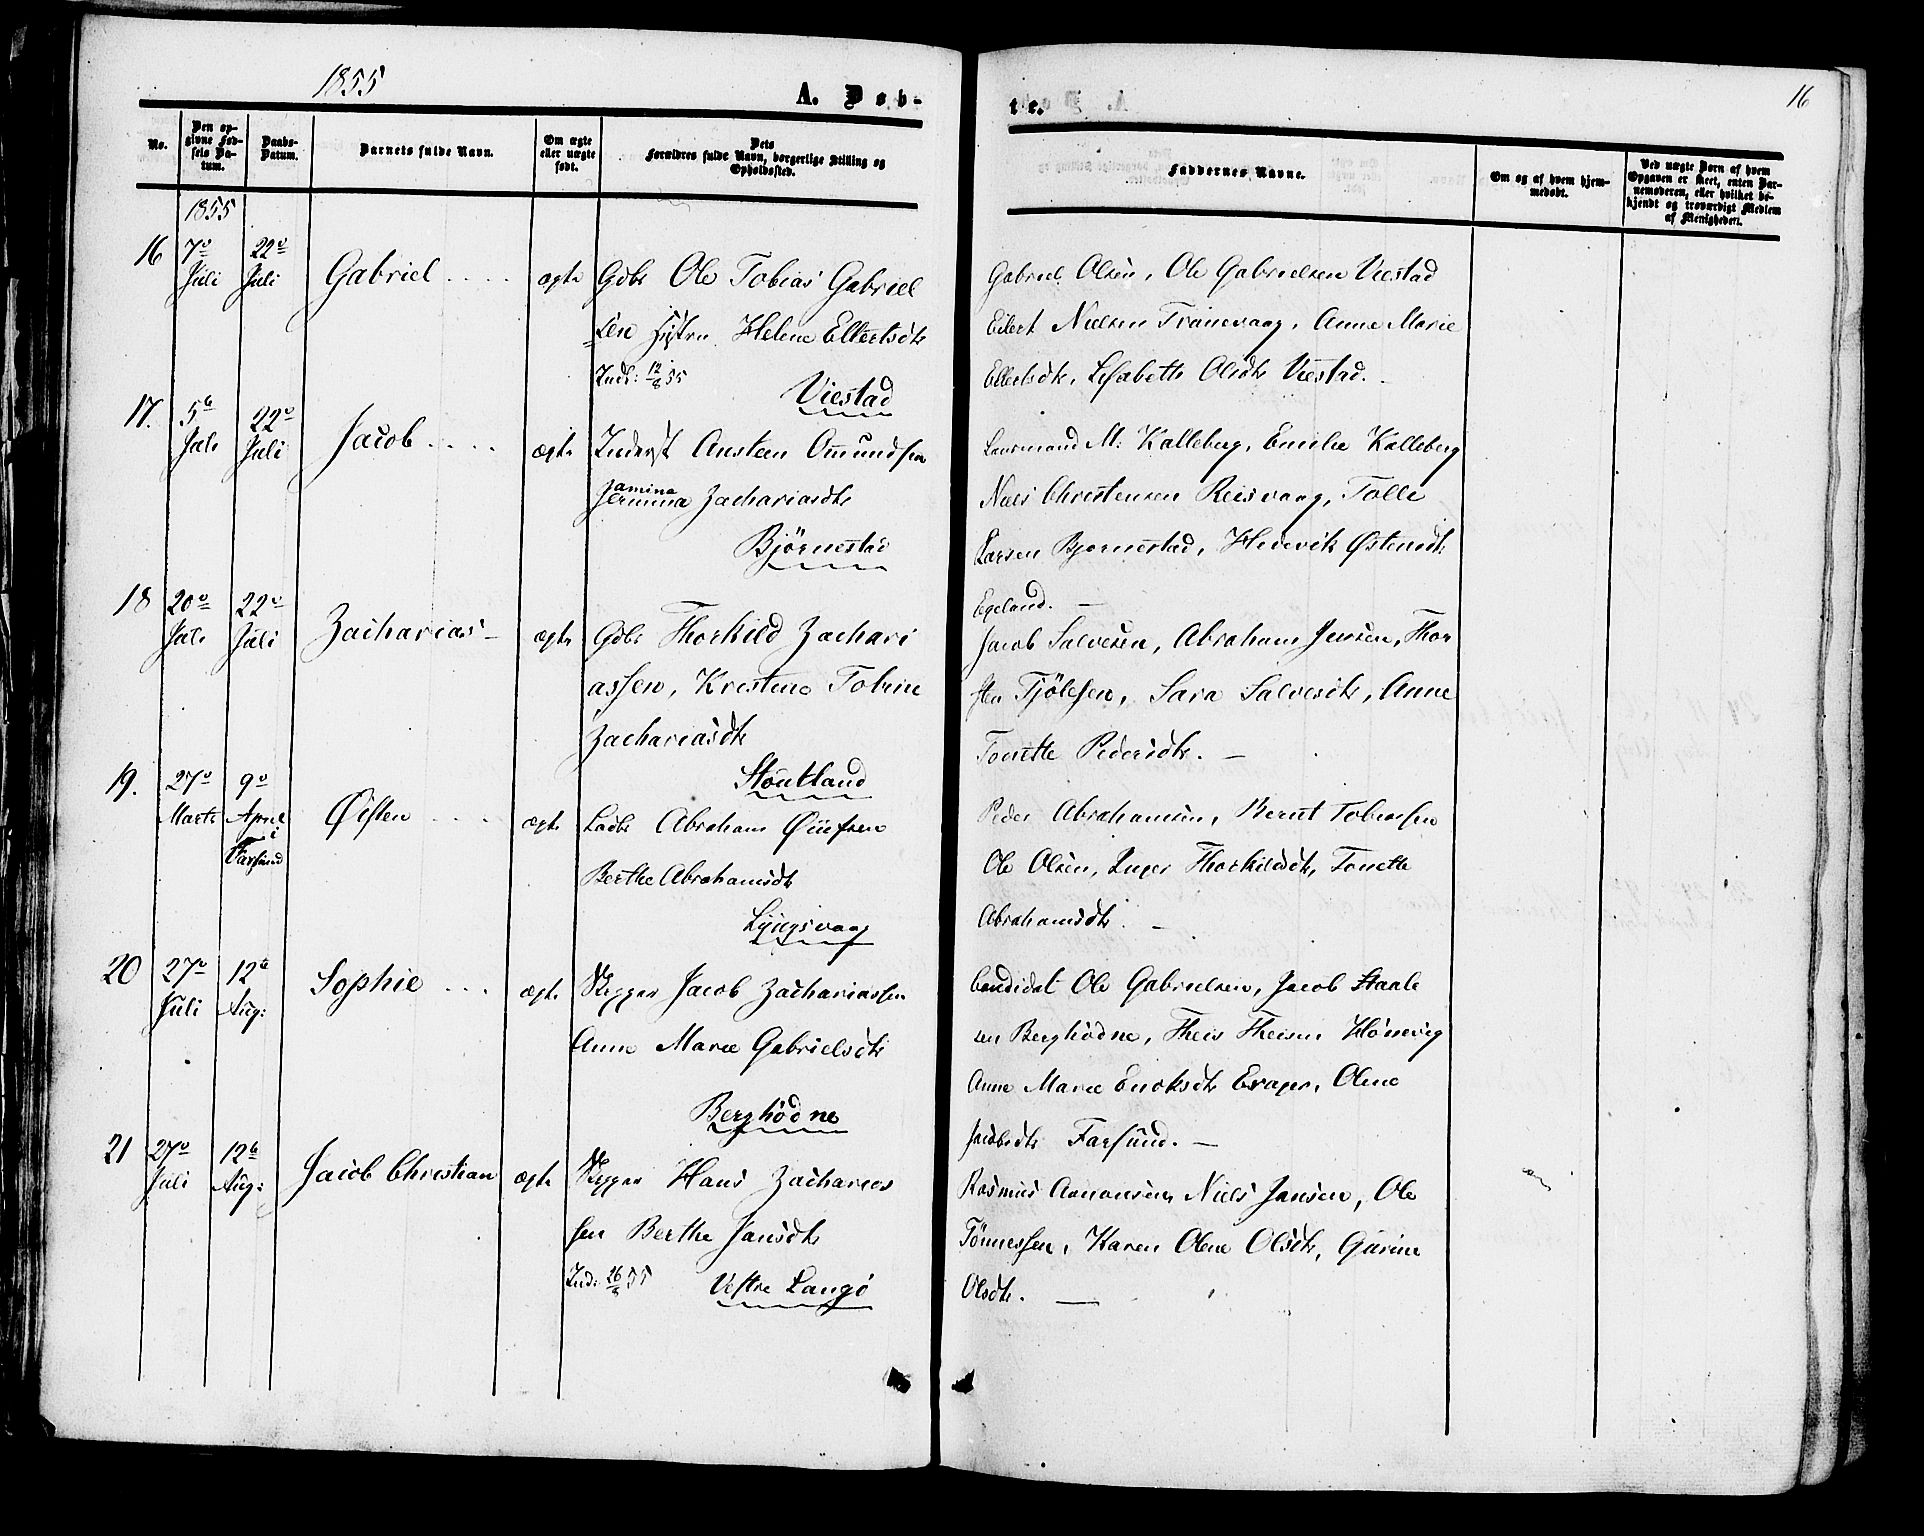 1855
A. Døb-
te.
16
No.
Den op-
givne Fød-
sels Da-
tum.
Daabs-
Datum.
Barnets fulde Navn.
Om ægte
eller uægte
født.
Dets
Forældres fulde Navn, borgerlige Stilling og
Opholdssted.
Faddernes Navne.
Om og af hvem hjem-
medøbt.
Ved uægte Børn af hvem
Opgaven er skeet, enten Bar-
nemoderen, eller hvilket be-
kjendt og troværdigt Medlem
af Menigheden.
1855
16 7de Juli 22de Juli Gabriel ægte
Gdbr Ole Tobias Gabriel
sen Hustru Helene Ellertsdtr
12/8 55
Viestad
Gabriel Olsen, Ole Gabrielsen Viestad
Eilert Nielsen Tranevaag, Anne Marie
Ellertsdtr, Lisabeth Olsdtr Viestad.
17. 5te Juli 22de Juli Jacob ægte
Inderst Austeen Omundsen
Jamina
Jermina Zachariasdtr
Bjørnestad
Lensmand M. Kalleberg, Emilie Kalleberg
Niels Christensen Reisvaag, Tolle
Larsen Bjornestad, Hedevik Østensdtr
Egeland.
18 20de Juli 22de Juli Zacharias ægte
Gdbr Thorkild Zachari
assen, Kristine Tobine
Zachariasdtr
Støutland
Jacob Salvesen, Abraham Jensen, Thor
sten Tjølesen, Sara Salvesdtr, Anne
Tonette Pedersdtr.
19. 27de Marts 9de April i Farsund Øisten ægte
Ladbr Abraham
Berthe Abrahamsdtr
Lyngsvaag
Peder Abrahamsen, Bernt Tobiassen
Ole Olsen, Inger Thorkildsdtr, Tonette
Abrahamsdtr.
20 27de Juli 12te Aug: Sophie ægte
Skipper Jacob Zachariassen
Anne Marie Gabrielsdtr
Berghødne
Candidat Ole Gabrielsen, Jacob Staale
sen Berghødne, Theis Theisen
Anne Marie Enoksdtr Erager, Olene
Jacobsdtr Farsund.
21 27de Juli 12te Aug: Jacob Christian ægte
Skipper Hans Zacharias
sen Berthe Jansdtr
26/8 55
Vestre Langø
Rasmus Aanonsen, Niels Jansen, Ole
Tönnessen, Karen Olene Olsdtr, Gurine
Olsdtr.